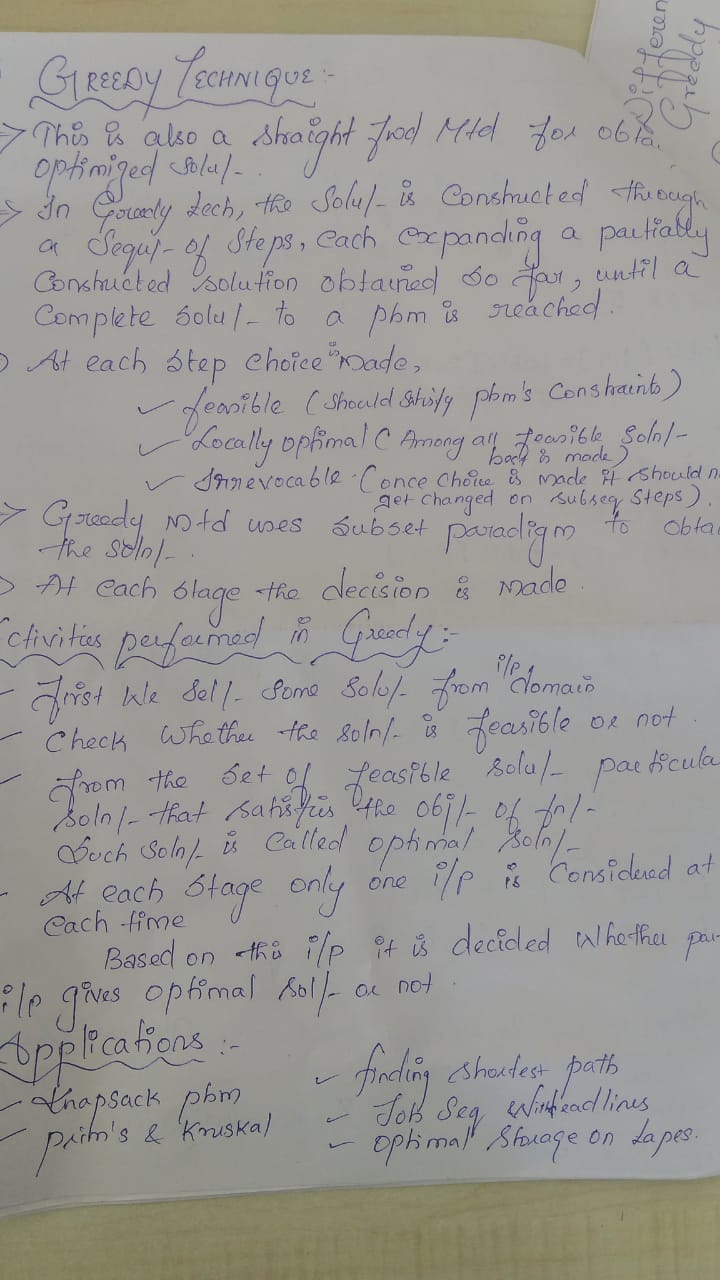 Differen
Greddy
GREEDY TECHNIQUE :-
→ This is also a straight fwd Mtd for obta
optimized solu/-.
→ In Greedy tech, the Solu/- is Constructed through
a Sequ/- of Steps, each expanding a partially
Constructed solution obtained so far, until a
Complete solu/- to a pbm is reached.
At each Step choice is made,
✓ feasible (should satisfy pbm's Constraints)
✓ Locally optimal (Among all feasible soln/-
is made)
✓ Irrevocable (once choice is made it should n
get changed on subseq steps).
→ Greedy Mtd uses subset paradigm to obtai
the soln/-.
→ At each stage the decision is made.
ctivities performed in Greedy :-
- First we sel/- some solu/- from i/p domain
- Check whether the soln/- is feasible or not.
- From the set of feasible solu/- particula
soln/- that satisfies the obj/- of fn/-
Such soln/- is called optimal soln/-
- At each stage only one i/p is Considered at
each time
Based on this i/p it is decided whether par
i/p gives optimal sol/- or not.
Applications :-
- Knapsack pbm
- Prim's & Kruskal
✓ finding shortest path
- Job Seq With deadlines
- optimal storage on tapes.